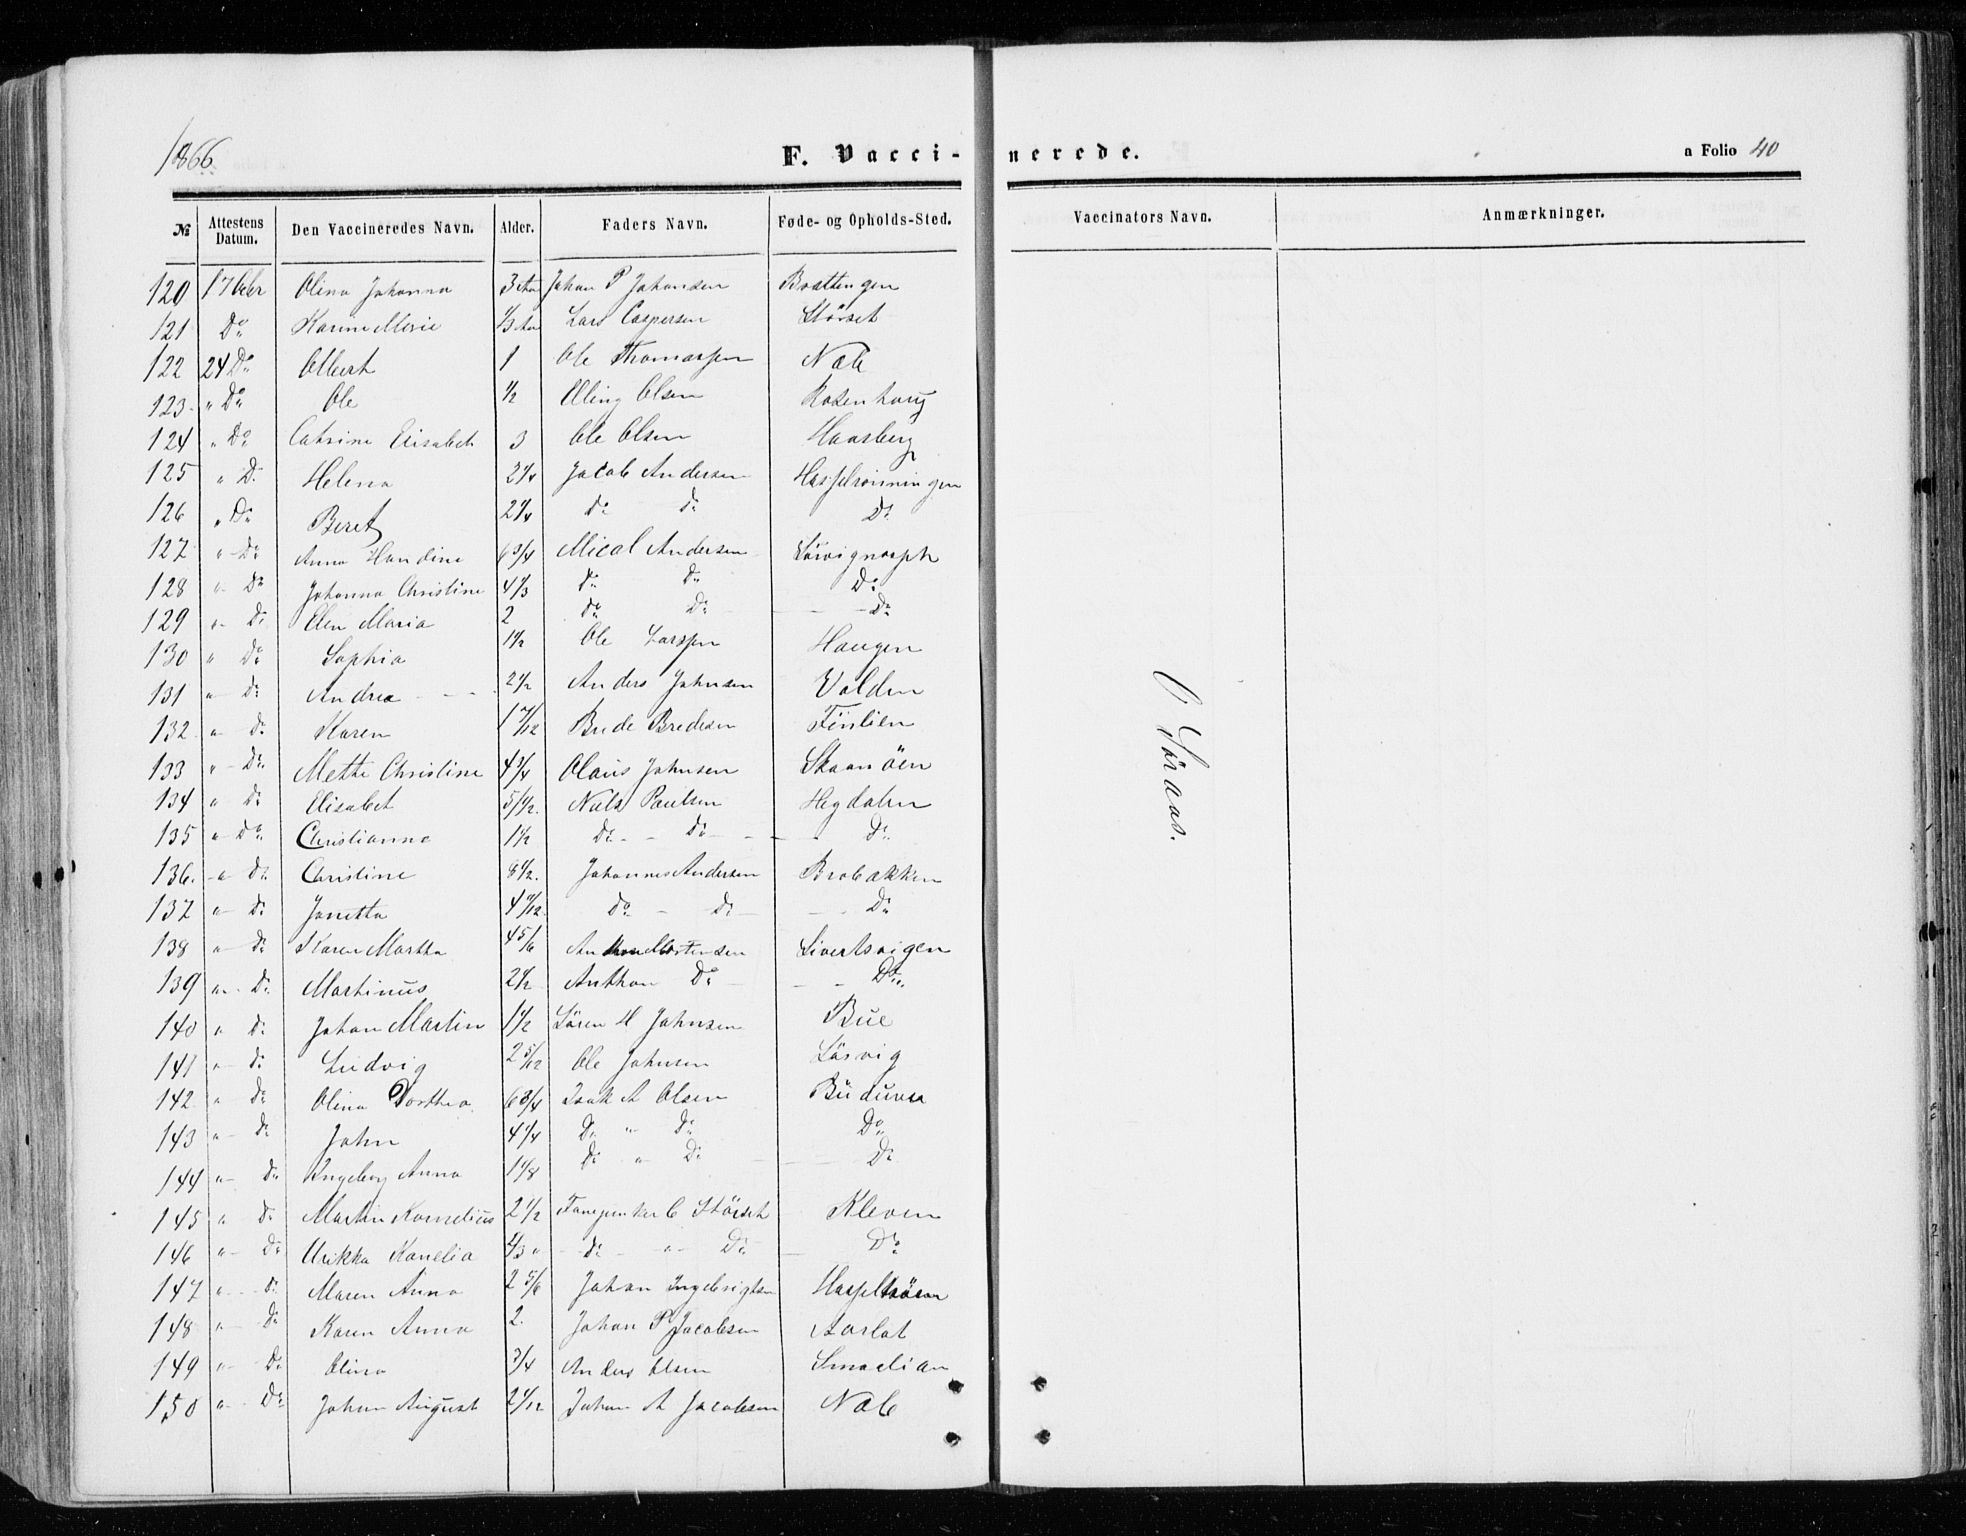 1866
F. Vacci- nerede.
a Folio 40
№ Attestens Datum. Den Vaccineredes Navn. Alder. Faders Navn. Føde- og Opholds-Sted. Vaccinators Navn. Anmærkninger.
120 17 Olina Johanna 3 Johan P Johansen
121 Do Karine Marie 1/3 Lars Caspersen Störset
122 24 Do Albert 1 Ole Thomassen Næb
123 " Do Ole 1/2 Elling Olsen Rosenhaug
124 " Do Catrine Elisabet 3 Ole Olsen Haasberg
125 " Do Helena 2 1/4 Jacob Andersen Hasselrönningen
126 " Do Beret 2 1/4 Do Do Do
127 " Do Anna Handine 6 3/4 Mical Andersen
128 " Do Johanna Christine 4 1/3 Do Do Do
129 " Do Elen Maria 2 Do Do Do
130 " Do Sophia 1 1/2 Ole Larssen Haugen
131 " Do Andrea 2 1/2 Anders Johnsen Volden
132 " Do Karen 1 7/12 Brede Bredesen
133 " Do Mette Christine 4 3/4 Olaus Johnsen Skaanöen
134 " Do Elisabet Nels Paulsen Hegdalen
135 " Do Christianna 1 1/2 Do Do Do
136. " Do Christine 8 1/2. Johannes Andersen Brobakken
137 " Do Janetta Do Do Do
138 " Do Karen Martha 4 5/6 Mortensen Sivertsvigen
139 " Do Martinus 2 1/2 Anthon Do Do
140 " Do Johan Martin 1 1/2 Sören H Johnsen Bue
141 " Do Ludvig 2 5/12 Ole Johnsen Lösvig
142 " Do Olina Dorthea 6 3/4 Isak A Olsen
143 " Do John 4 1/4 Do " Do Do
144 " Do Ingeborg Anna 1 1/8 Do " Do Do
145 " Do Martin Kornelius 2 1/2 C Störset Kleven
146 " Do Urikka Kornelia Do " Do Do
147 " Do Maren Anna 2 5/6 Johan Ingebrigtsen
148 " Do Karen Anna 2. Johan P Jacobsen Aarlot
149 " Do Olina 3/4 Anders Olsen Smaalian
150 " Do Johan August 2 1/12 Johan A Jacobsen Næb
O Søraas.